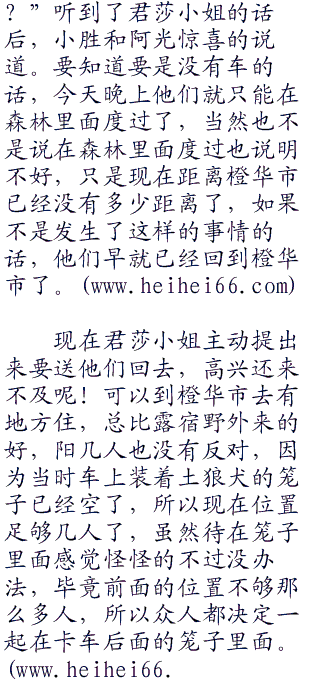 ？”听到了君莎小姐的话
后，小胜和阿光惊喜的说
道。要知道要是没有车的
话，今天晚上他们就只能在
森林里面度过了，当然也不
是说在森林里面度过也说明
不好，只是现在距离橙华市
已经没有多少距离了，如果
不是发生了这样的事情的
话，他们早就已经回到橙华
市了。(www.heihei66.com)
现在君莎小姐主动提出
来要送他们回去，高兴还来
不及呢！可以到橙华市去有
地方住，总比露宿野外来的
好，阳几人也没有反对，因
为当时车上装着土狼犬的笼
子已经空了，所以现在位置
足够几人了，虽然待在笼子
里面感觉怪怪的不过没办
法，毕竟前面的位置不够那
么多人，所以众人都决定一
起在卡车后面的笼子里面。
(www.heihei66.